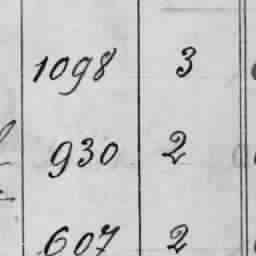 1098 3
930 2
607 2